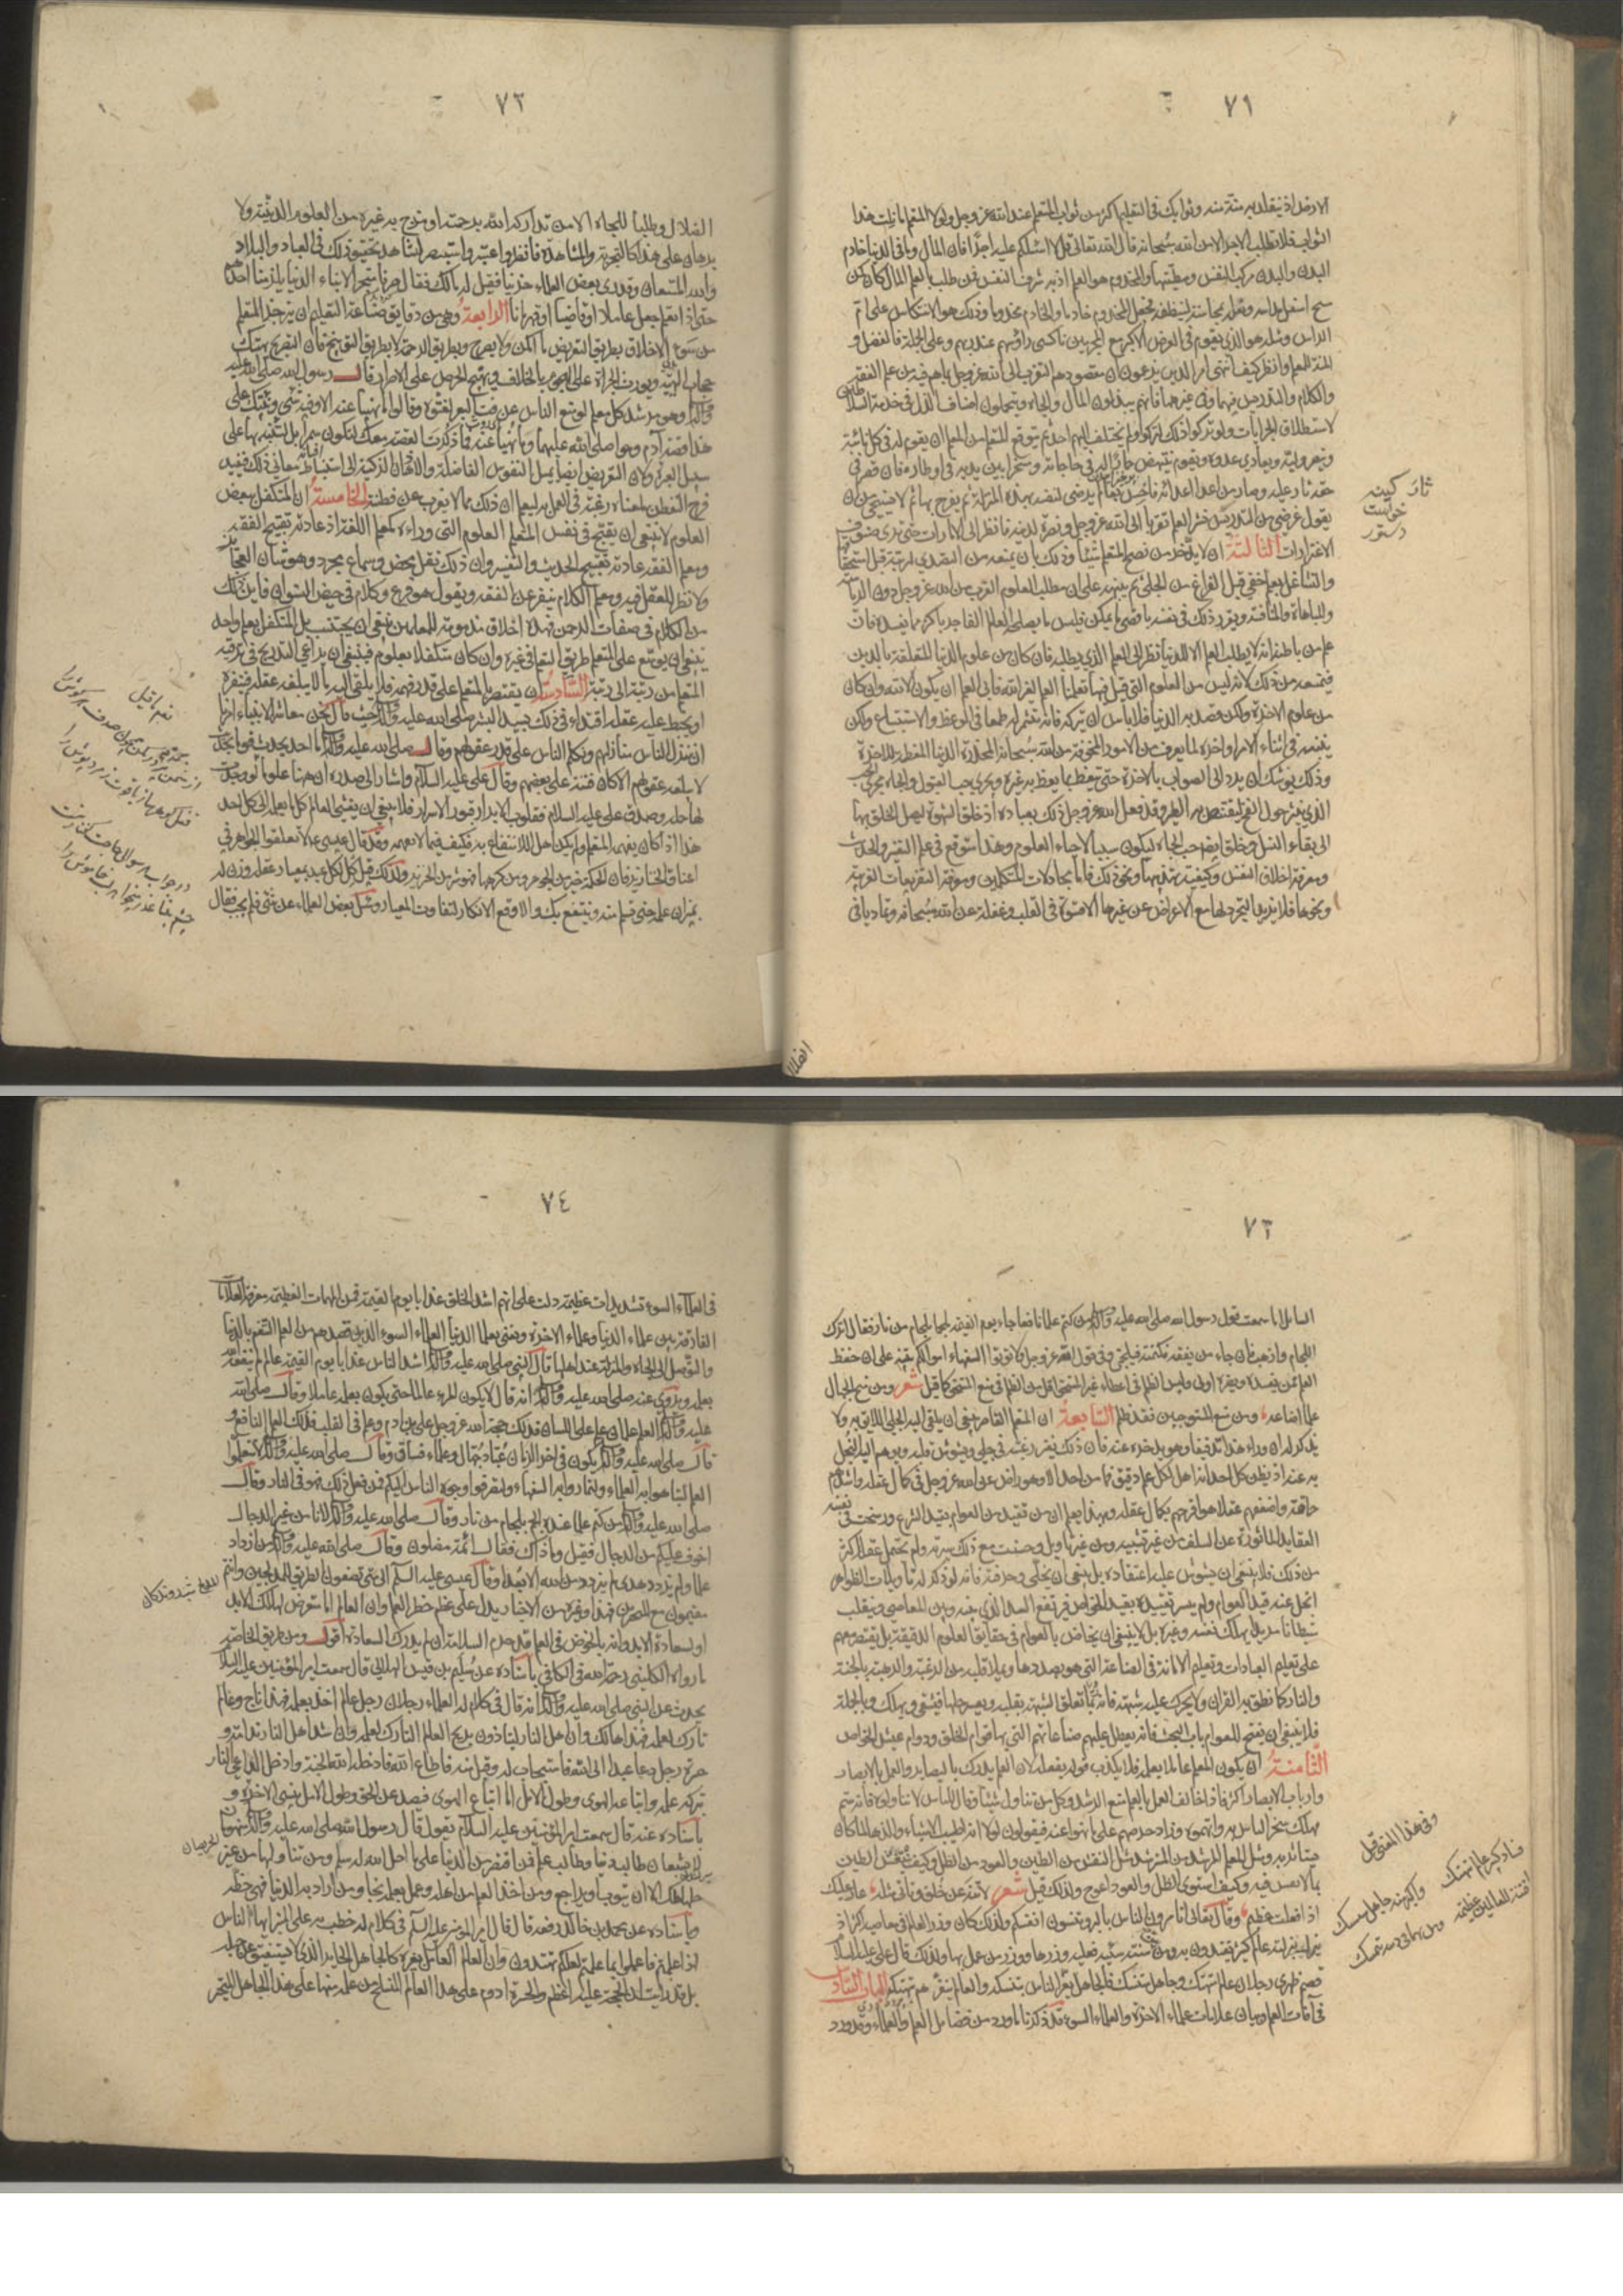 ٧١
الارض اذ ينقلد به منة منه وثوابك فى التعليم اكثر من ثواب المتعلم عند الله عز وجل ولولا المتعلم ما نلت هذا
الثواب فلا تطلب الاجر الا من الله سبحانه قال الله تعالى قل لا اسئلكم عليه اجرًا فان المال وما فى الدنيا خادم
البدن والبدن مركب النفس ومطيتها والمخدوم هو العلم اذ به شرف النفس فمن طلب بالعلم المال كان كمن
مسح اسفل مداسه ونعله بمحاسنه لينظفه فجعل المخدوم خادما والخادم مخدوما وذلك هو الانتكاس على ام
الراس ومثله هو الذى يقوم فى العرض الاكبر مع المجرمين ناكسى رؤسهم عند ربهم وعلى الجملة فالفضل و
المنة للمعلم فانظر كيف انتهى امر الدين يزعمون ان مقصودهم التقرب الى الله عز وجل بما هم فيه من علم الفقه
والكلام والتدريس فيهما وفى غيرهما فانهم يبذلون المال والجاه ويتحملون اصناف الذل فى خدمة السلاطين
لاستطلاق الجرايات ولو تركوا ذلك لتركوا ولم يختلف اليهم احد ثم يتوقع المعلم من المتعلم ان يقوم له فى كل نائبة
وينصر وليه ويعادى عدوه وينهض حمارا له فى حاجاته ومسخرا بين يديه فى اوطاره فان قصر فى
حقه ثار عليه وصار من اعدا اعدائه فاخسس بعالم يرضى لنفسه بهذه المنزلة ثم يفرح بها ثم لا يستحيى من ان
يقول غرضى من التدريس نشر العلم تقربا الى الله عز وجل ونصرة لدينه فانظر الى الامارات حتى ترى صنوف
الاغترارات الثالثة ان لا يدخر من نصح المتعلم شيئا وذلك بان يمنعه من التصدى لرتبة قبل استحقاقها
والتشاغل بعلم خفى قبل الفراغ من الجلى ثم ينبهه على ان مطلب العلوم القرب من الله عز وجل دون الرياسة
والمباهاة والمنافسة ويقرر ذلك فى نفسه باقصى ما يمكن فليس ما يصلحه العالم الفاجر باكثر مما يفسده فان
علم من باطنه انه لا يطلب العلم الا للدنيا نظر الى العلم الذى يطلبه فان كان من علوم الدنيا المتعلقة بالدين
فيمنعه من ذلك لانه ليس من العلوم التى قيل فيها تعلمنا العلم لغير الله فابى العلم ان يكون الا لله وان كان
من علوم الاخرة ولكن قصد به الدنيا فلا باس ان تركه فانه يتشمر له طمعا فى الوعظ والاستتباع ولكن
يتنبه فى اثناء الامر او آخره لما يعرف من الامور المخوفة من الله سبحانه المحقرة الدنيا المعظمة للاخرة
وذلك يوشك ان يردّ الى الصواب بالاخرة حتى يتعظ بما يعظ به غيره ويجرى حب القبول والجاه مجرى الحب
الذى ينثر حول الفخ ليقتنص به الطير وقد فعل الله عز وجل ذلك بعباده اذ خلق الشهوة ليصل الخلق بها
الى بقاء النسل وخلق ايضا حب الجاه ليكون سببا لاحياء العلوم وهذا متوقع فى علم التفسير والحديث
ومعرفة اخلاق النفس وكيفية تهذيبها ونحو ذلك فاما مجادلات المتكلمين ومعرفة التفريعات الغريبة
ونحوها فلا يزيد التجرد لها مع الاعراض عن غيرها الا قسوة فى القلب وغفلة عن الله سبحانه وتماديا فى
ثار كينه
خواست
دستور
الضلال
٧٢
الضلال وطلبا للجاه الا من تداركه الله برحمته او مزج به غيره من العلوم الدينية ولا
برهان على هذا كالتجربة والمشاهدة فانظر واعتبر واستبصر لتشاهد تحقيق ذلك فى العباد والبلاد
والله المستعان وقد رئى بعض العلماء حزينا فقيل له مالك فقال صرنا متجرا لابناء الدنيا يلزمنا احدهم
حتى اذا تعلم جعل عاملا او قاضيا او قهرمانا الرابعة وهى من دقايق صناعة التعليم ان يزجر المتعلم
من سوء الاخلاق بطريق التعريض ما امكن ولا يصرح وبطريق الرحمة لا بطريق التوبيخ فان التصريح يهتك
حجاب الهيبة ويورث الجراة على الهجوم بالخلاف ويهيج الحرص على الاصرار قال رسول الله صلى الله عليه
وآله وهو مرشد كل معلم لو منع الناس عن فت البعر لفتوه وقالوا ما نهينا عنه الا وفيه شئ وينبهك على
هذا قصة آدم وحوا صلى الله عليهما وما نهيا عنه فما ذكرت القصة معك لتكون سمرا بل لتنبه بها على
سبيل العبرة ولان التعريض ايضا يميل النفوس الفاضلة والاذهان الذكية الى استنباط معانى ذلك فيفيد
فرح التفطن لمعناه رغبة فى العمل به ليعلم ان ذلك مما لا يعزب عن فطنته الخامسة ان المتكفل ببعض
العلوم لا ينبغى ان يقبح فى نفس المتعلم العلوم التى وراءه كمعلم اللغة اذ عادته تقبيح الفقه
ومعلم الفقه عادته تقبيح الحديث والتفسير وان ذلك نقل محض وسماع مجرد وهو شان العجايز
ولا نظر للعقل فيه ومعلم الكلام ينفر عن الفقه ويقول هو فرع وكلام فى حيض النسوان فاين ذلك
من الكلام فى صفات الرحمن فهذه اخلاق مذمومة للمعلمين ينبغى ان يجتنب بل المتكفل بعلم واحد
ينبغى ان يوسع على المتعلم طريق التعلم فى غيره وان كان متكفلا بعلوم فينبغى ان يراعى التدريج فى ترقيه
المتعلم من رتبة الى رتبة السادسة ان يقتصر بالمتعلم على قدر فهمه فلا يلقى اليه ما لا يبلغه عقله فينفره
او يخبط عليه عقله اقتداء فى ذلك بسيد البشر صلى الله عليه وآله حيث قال نحن معاشر الانبياء امرنا
ان ننزل الناس منازلهم ونكلم الناس على قدر عقولهم وقال صلى الله عليه وآله ما احد يحدث قوما بحديث
لا يبلغه عقولهم الا كان فتنة على بعضهم وقال على عليه السلام واشار الى صدره ان ههنا علوما لو وجدت
لها حملة وصدق على عليه السلام فقلوب الابرار قبور الاسرار فلا ينبغى ان يفشى العالم كل ما يعلم الى كل احد
هذا اذا كان يفهمه المتعلم ولم يكن اهلا للانتفاع به فكيف فيما لا يفهمه وقد قال عيسى ع لا تعلقوا الجواهر فى
اعناق الخنازير فان الحكمة خير من الجوهر ومن كرهها فهو شر من الخنزير ولذلك قيل كل لكل عبد بمعيار عقله وزن له
بميزان علمه حتى تسلم منه وينتفع بك والا وقع الانكار لتفاوت المعيار وسئل بعض العلماء عن شئ فلم يجب فقال
نعم ما قيل
٧٣
السائل اما سمعت قول رسول الله صلى الله عليه وآله من كتم علما نافعا جاء يوم القيمة ملجما بلجام من نار فقال اترك
اللجام واذهب فان جاء من يفقه فكتمته فيلجمنى وفى قول الله عز وجل ولا تؤتوا السفهاء اموالكم تنبيه على ان حفظ
العلم ممن يفسده ويضره اولى وليس الظلم فى اعطاء غير المستحق اقل من الظلم فى منع المستحق كما قيل شعر ومن منح الجهال
علما اضاعه ومن منع المستوجبين فقد ظلم السابعة ان المتعلم القاصر ينبغى ان يلقى اليه الجلى اللايق به ولا
يذكر له ان وراء هذا تدقيقا وهو يدخره عنه فان ذلك يفتر رغبته فى جلى ويشوش قلبه ويوهم اليه البخل
به عنه اذ يظن كل احد انه اهل لكل علم دقيق فما من احد الا وهو راض عن الله عز وجل فى كمال عقله واشدهم
حماقة واضعفهم عقلا هو افرحهم بكمال عقله وبهذا يعلم ان من تقيد من العوام بقيد الشرع ورسخت فى نفسه
العقايد الماثورة عن السلف من غير تشبيه ومن غير تاويل وحسنت مع ذلك سريرته ولم يحتمل عقله اكثر
من ذلك فلا ينبغى ان يشوش عليه اعتقاده بل ينبغى ان يخلى وحرفته فانه لو ذكر له تاويلات الظواهر
انحل عنه قيد العوام ولم يتيسر تقييده بقيد الخواص فيرتفع السد الذى بينه وبين المعاصى وينقلب
شيطانا مريدا يهلك نفسه وغيره بل لا ينبغى ان يخاض بالعوام فى حقايق العلوم الدقيقة بل يقتصر معهم
على تعليم العبادات وتعليم الامانة فى الصناعة التى هو بصددها ويملا قلبه من الرغبة والرهبة بالجنة
والنار كما نطق به القرآن ولا يحرك عليه شبهة فانه ربما تعلق الشبهة بقلبه ويعسر حلها فيشقى ويهلك وبالجملة
فلا ينبغى ان يفتح للعوام باب البحث فانه يعطل عليهم صناعاتهم التى بها قوام الخلق ودوام عيش الخواص
الثامنة ان يكون المعلم عاملا بعلمه فلا يكذب قوله بفعله لان العلم يدرك بالبصاير والعمل بالابصار
وارباب الابصار اكثر فاذا خالف العمل بالعلم منع الرشد وكل من تناول شيئا وقال للناس لا تناولوه فانه سم
مهلك سخر الناس به واتهموه وزاد حرصهم على ما نهوا عنه فيقولون لولا انه اطيب الاشياء والذها لما كان
يستأثر به ومثل المعلم المرشد من المسترشد مثل النقش من الطين والعود من الظل وكيف ينتقش الطين
بما لا نقش فيه وكيف استوى الظل والعود اعوج ولذلك قيل شعر لا تنه عن خلق وتأتى مثله عار عليك
اذا فعلت عظيم وقال تعالى اتامرون الناس بالبر وتنسون انفسكم ولذلك كان وزر العالم فى معاصيه اكثر اذ
يزل بزلته عالم كثير ويقتدون به ومن سنّ سنة سيئة فعليه وزرها ووزر من عمل بها ولذلك قال على عليه السلام
قصم ظهرى رجلان عالم متهتك وجاهل متنسك فالجاهل يغر الناس بتنسكه والعالم ينفرهم بتهتكه الباب السادس
فى آفات العلم وبيان علامات علماء الاخرة والعلماء السوء قد ذكرنا ما ورد من فضايل العلم والعلماء وقد ورد
وفى هذا المعنى قيل
فساد كبير عالم متهتك
واكبر منه جاهل متنسك
٧٤
فى العلماء السوء تشديدات عظيمة دلت على انهم اشد الخلق عذابا يوم القيمة فمن المهمات العظيمة معرفة العلامات
الفارقة بين علماء الدنيا وعلماء الاخرة ونعنى بعلماء الدنيا العلماء السوء الذين قصدهم من العلم التنعم بالدنيا
والتوصل الى الجاه والمنزلة عند اهلها قال النبى صلى الله عليه وآله اشد الناس عذابا يوم القيمة عالم لم ينفعه الله
بعلمه وروى عنه صلى الله عليه وآله انه قال لا يكون المرء عالما حتى يكون بعلمه عاملا وقال صلى الله
عليه وآله العلم علمان علم على اللسان فذلك حجة الله عز وجل على بن آدم وعلم فى القلب فذلك العلم النافع و
قال صلى الله عليه وآله يكون فى اخر الزمان عُبّاد جُهّال وعلماء فساق وقال صلى الله عليه وآله لا تتعلموا
العلم لتباهوا به العلماء ولتماروا به السفهاء ولتصرفوا وجوه الناس اليكم فمن فعل ذلك فهو فى النار وقال
صلى الله عليه وآله من كتم علما عنده الجم بلجام من نار وقال صلى الله عليه وآله لانا من غير الدجال
اخوف عليكم من الدجال فقيل وما ذاك فقال ائمة مضلون وقال صلى الله عليه وآله من ازداد
علما ولم يزدد هدى لم يزدد من الله الا بعدا وقال عيسى عليه السلم الى متى تصفون الطريق للمدلجين وانتم
مقيمون مع المتحيرين فهذا وغيره من الاخبار يدل على عظم خطر العلم وان العالم اما متعرض لهلاك الابد
او لسعادة الابد وانه بالخوض فى العلم قد حرم السلامة ان لم يدرك السعادة اقول ومن طريق الخاصة
ما رواه الكلينى رحمه الله فى الكافى باسناده عن سليم بن قيس الهلالى قال سمعت امير المؤمنين عليه السلام
يحدث عن النبى صلى الله عليه وآله انه قال فى كلام له العلماء رجلان رجل عالم اخذ بعلمه فهذا ناج وعالم
تارك لعلمه فهذا هالك وان اهل النار ليتاذون بريح العالم التارك لعلمه وان اشد اهل النار ندامة و
حسرة رجل دعا عبدا الى الله فاستجاب له وقبل منه فاطاع الله فادخله الله الجنة وادخل الداعى النار
بتركه علمه واتباعه الهوى وطول الامل اما اتباع الهوى فيصد عن الحق وطول الامل ينسى الاخرة و
باسناده عنه قال سمعت امير المؤمنين عليه السلام يقول قال رسول الله صلى الله عليه وآله منهومان
لا يشبعان طالب دنيا وطالب علم فمن اقتصر من الدنيا على ما احل الله له سلم ومن تناولها من غير
حلها هلك الا ان يتوب او يراجع ومن اخذ العلم من اهله وعمل بعلمه نجا ومن اراد به الدنيا فهى حظه
وباسناده عن محمد بن خالد رفعه قال قال امير المؤمنين عليه السلم فى كلام له خطب به على المنبر ايها الناس
اذا علمتم فاعملوا بما علمتم لعلكم تهتدون وان العالم العامل بغيره كالجاهل الحاير الذى لا يستفيق عن جهله
بل قد رايت ان الحجة عليه اعظم والحسرة ادوم على هذا العالم المنسلخ من علمه منها على هذا الجاهل المتحير
الحريصان